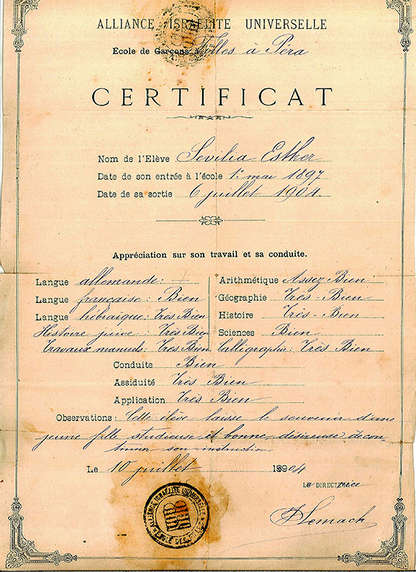 ALLIANCE ISRAÉLITE UNIVERSELLE
Ecole de Garçons Filles à Péra
CERTIFICAT
Nom de l'Elève Sevilia Esther
Date de son entrée à l'école 1er mai 1897
Date de sa sortie 6 juillet 1904
Appréciation sur son travail et sa conduite.
Langue allemande:
Langue française: Bien
Langue hébraïque: Très Bien
Histoire juive: Très Bien
Travaux manuels: Très Bien
Arithmétique Assez Bien
Géographie Très-Bien
Histoire Très-Bien
Sciences Bien
Calligraphie: Très Bien
Conduite Bien
Assiduité Très Bien
Application Très Bien
Observations: Cette élève laisse le souvenir d'une
jeune fille studieuse et bonne, désireuse de con
tinuer son instruction
Le 10 juillet 1904
LA DIRECTrice
ALLIANCE ISRAÉLITE UNIVERSELLE